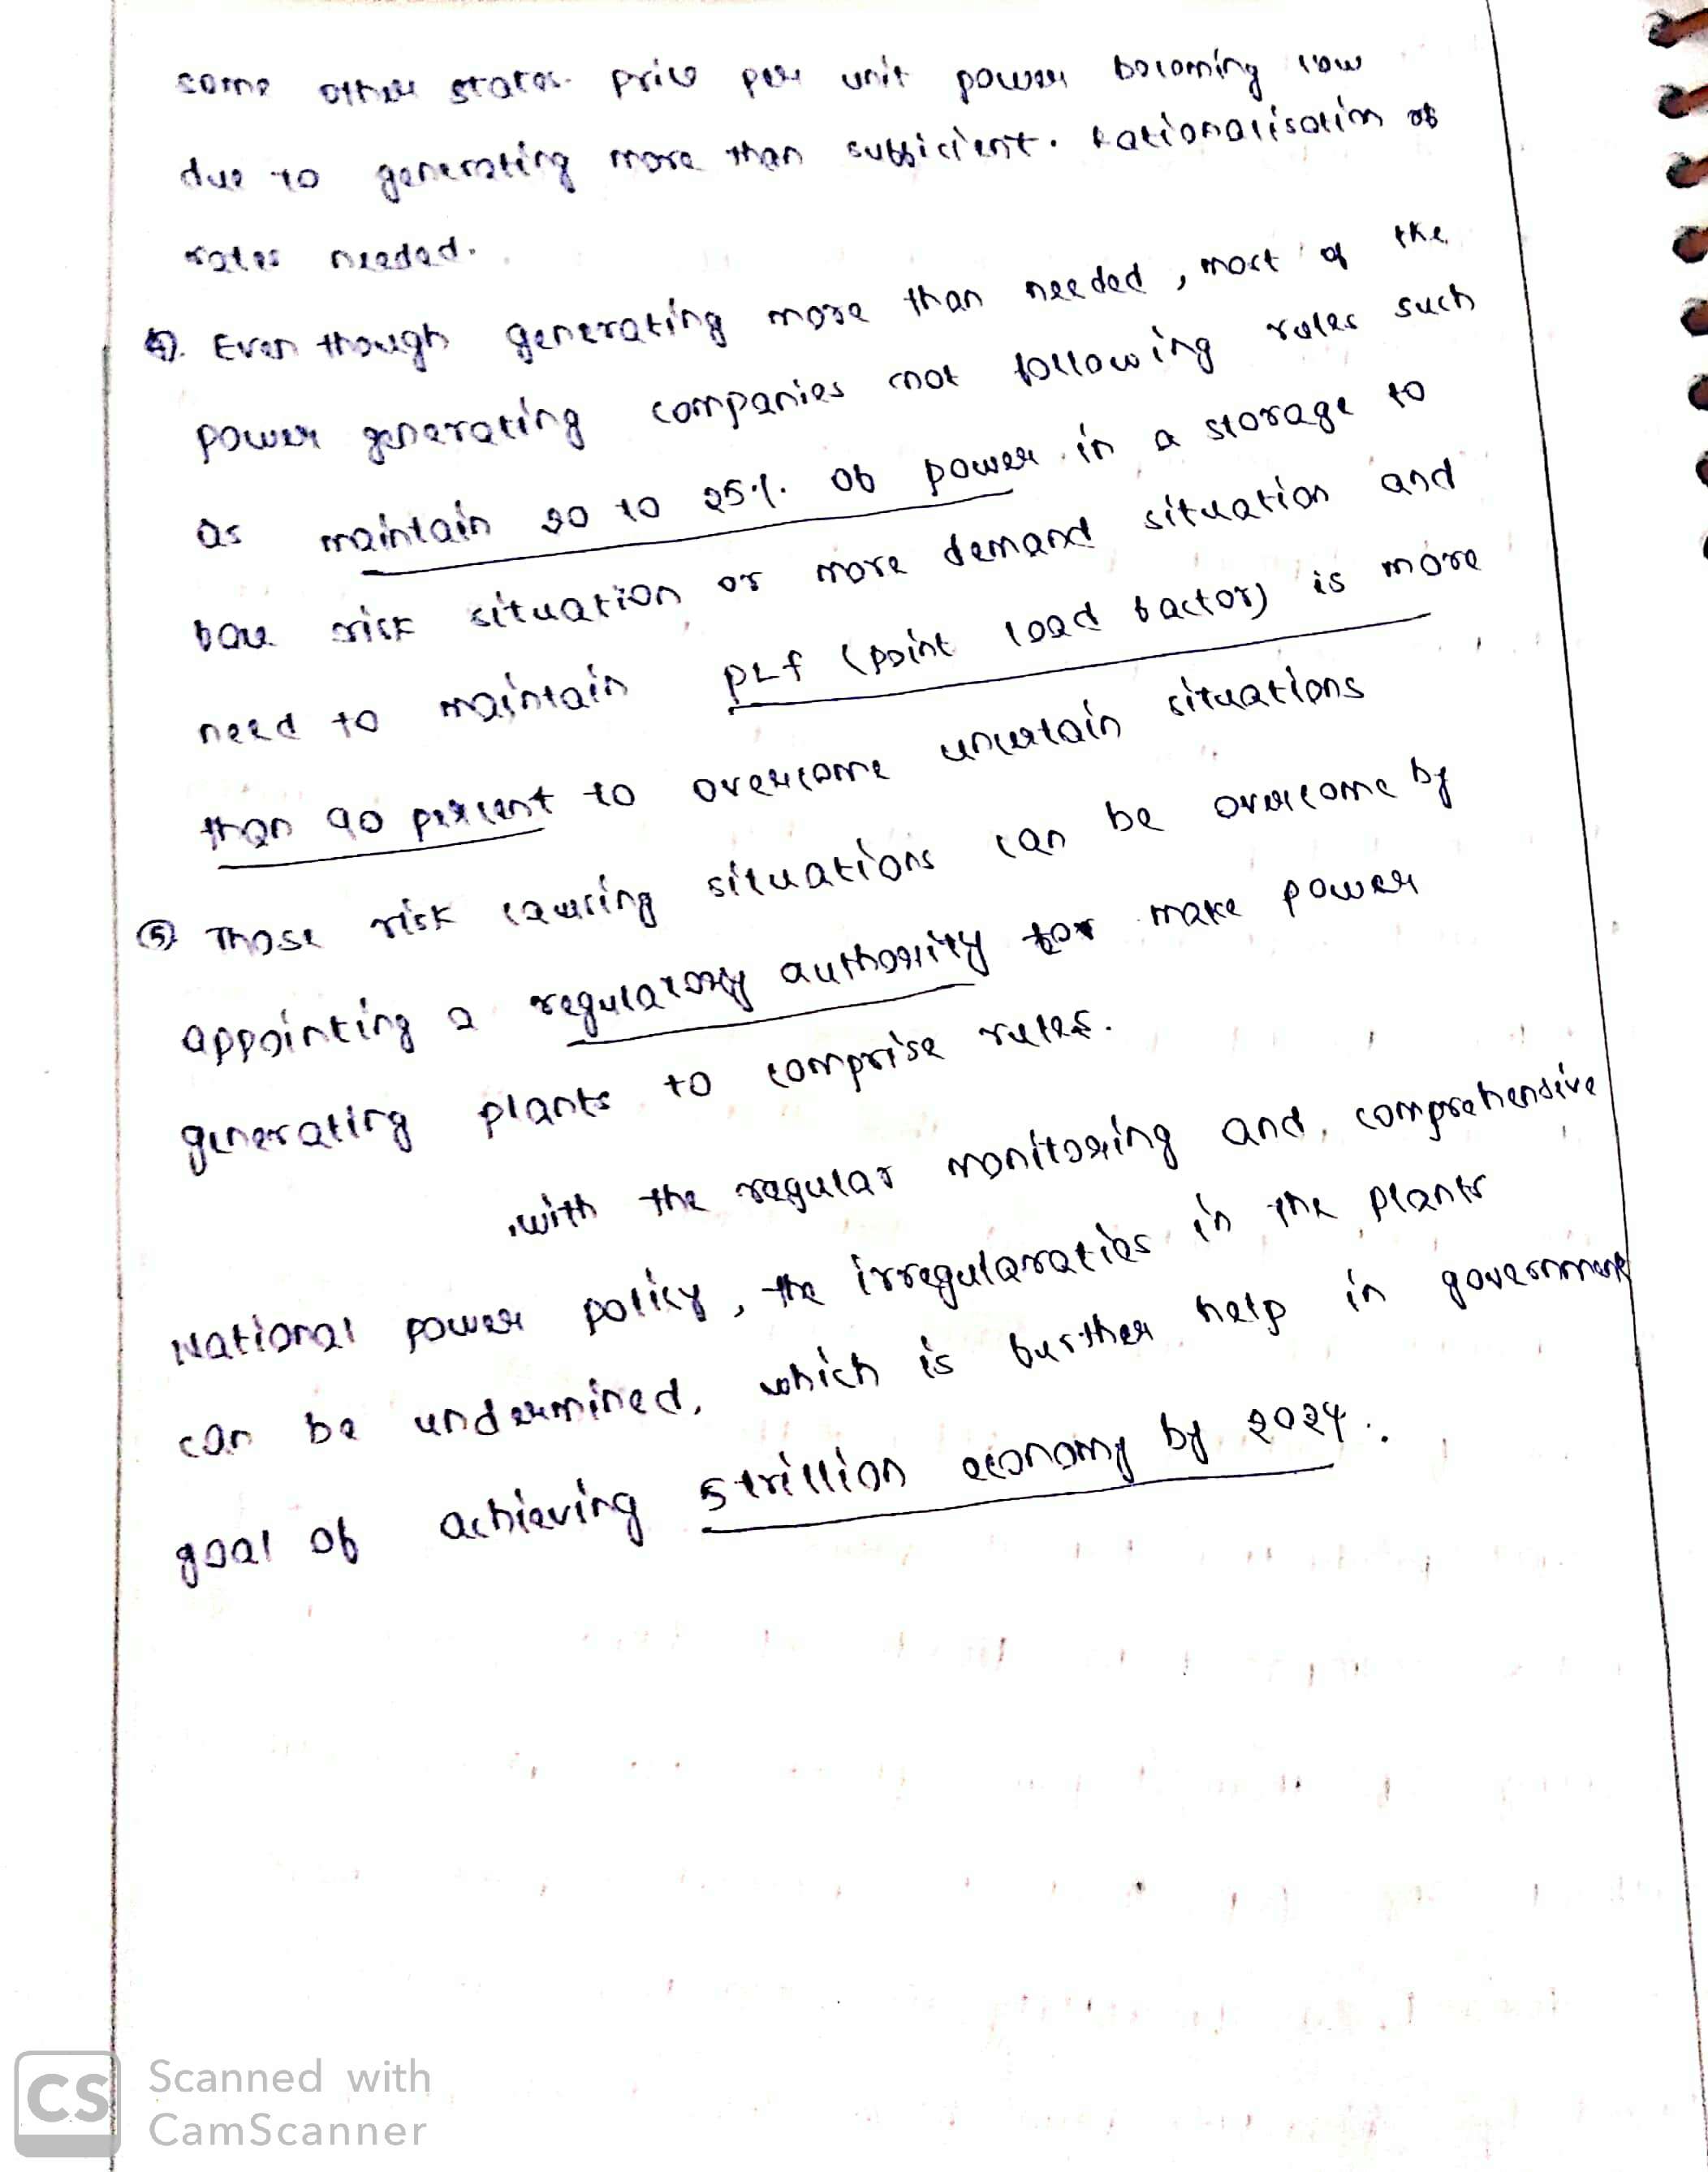 some other states. price per unit power becoming low
due to generating more than sufficient. Rationalisation of
rates needed.
4). Even though generating more than needed, most of the
power generating companies not following rules such
as maintain 20 to 25%. of power in a storage to
face risk situation or more demand situation and
need to maintain PLf (point load factor) is more
than 90 percent to overcome uncertain situations
5) Those risk causing situations can be overcome by
appointing a regulatory authority for make power
generating plants to comprise rules.
with the regular monitoring and comprehensive
National power policy, the irregularaties in the plants
can be undermined, which is further help in government
goal of achieving 5 trillion economy by 2024.
CS Scanned with
CamScanner